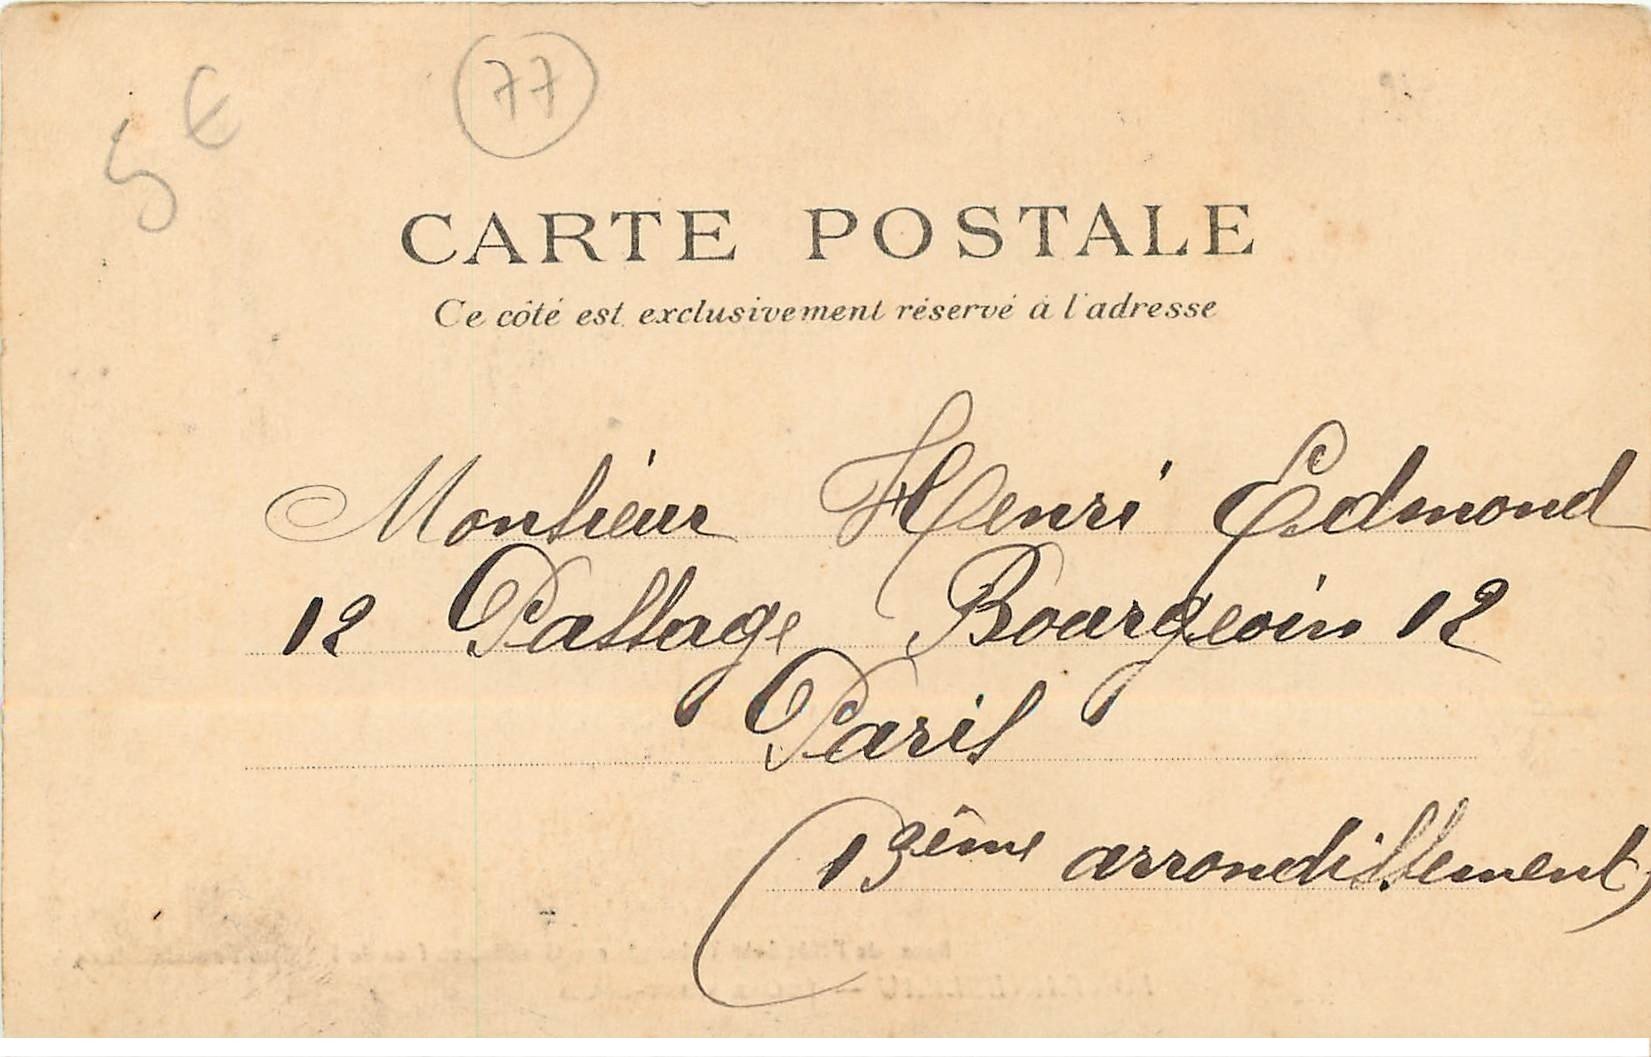 5 €
77
CARTE POSTALE
Ce côté est exclusivement réservé à l'adresse
Monsieur Henri Edmond
12 Passage Bourgoin 12
Paris
(13ème arrondissement)